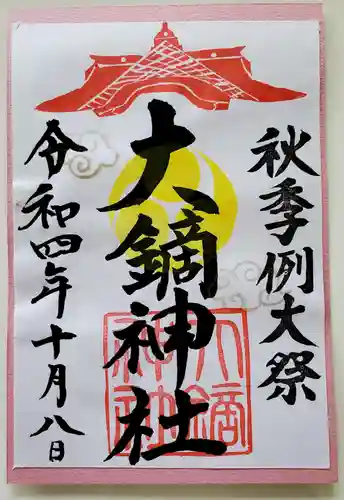 秋季例大祭
大鏑神社
令和四年十月八日
大鏑
神社